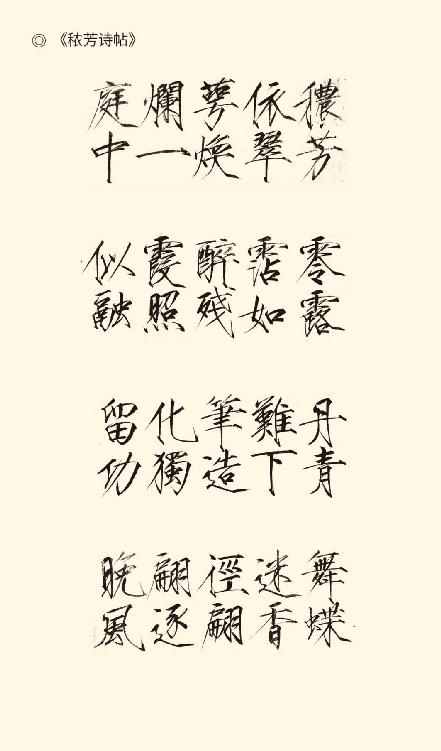 ◎ 《秾芳诗帖》
穠芳
依翠
萼煥
爛一
庭中
零露
霑如
醉殘
霞照
似融
丹青
難下
筆造
化獨
留功
舞蝶
迷香
徑翩
翩逐
晚風